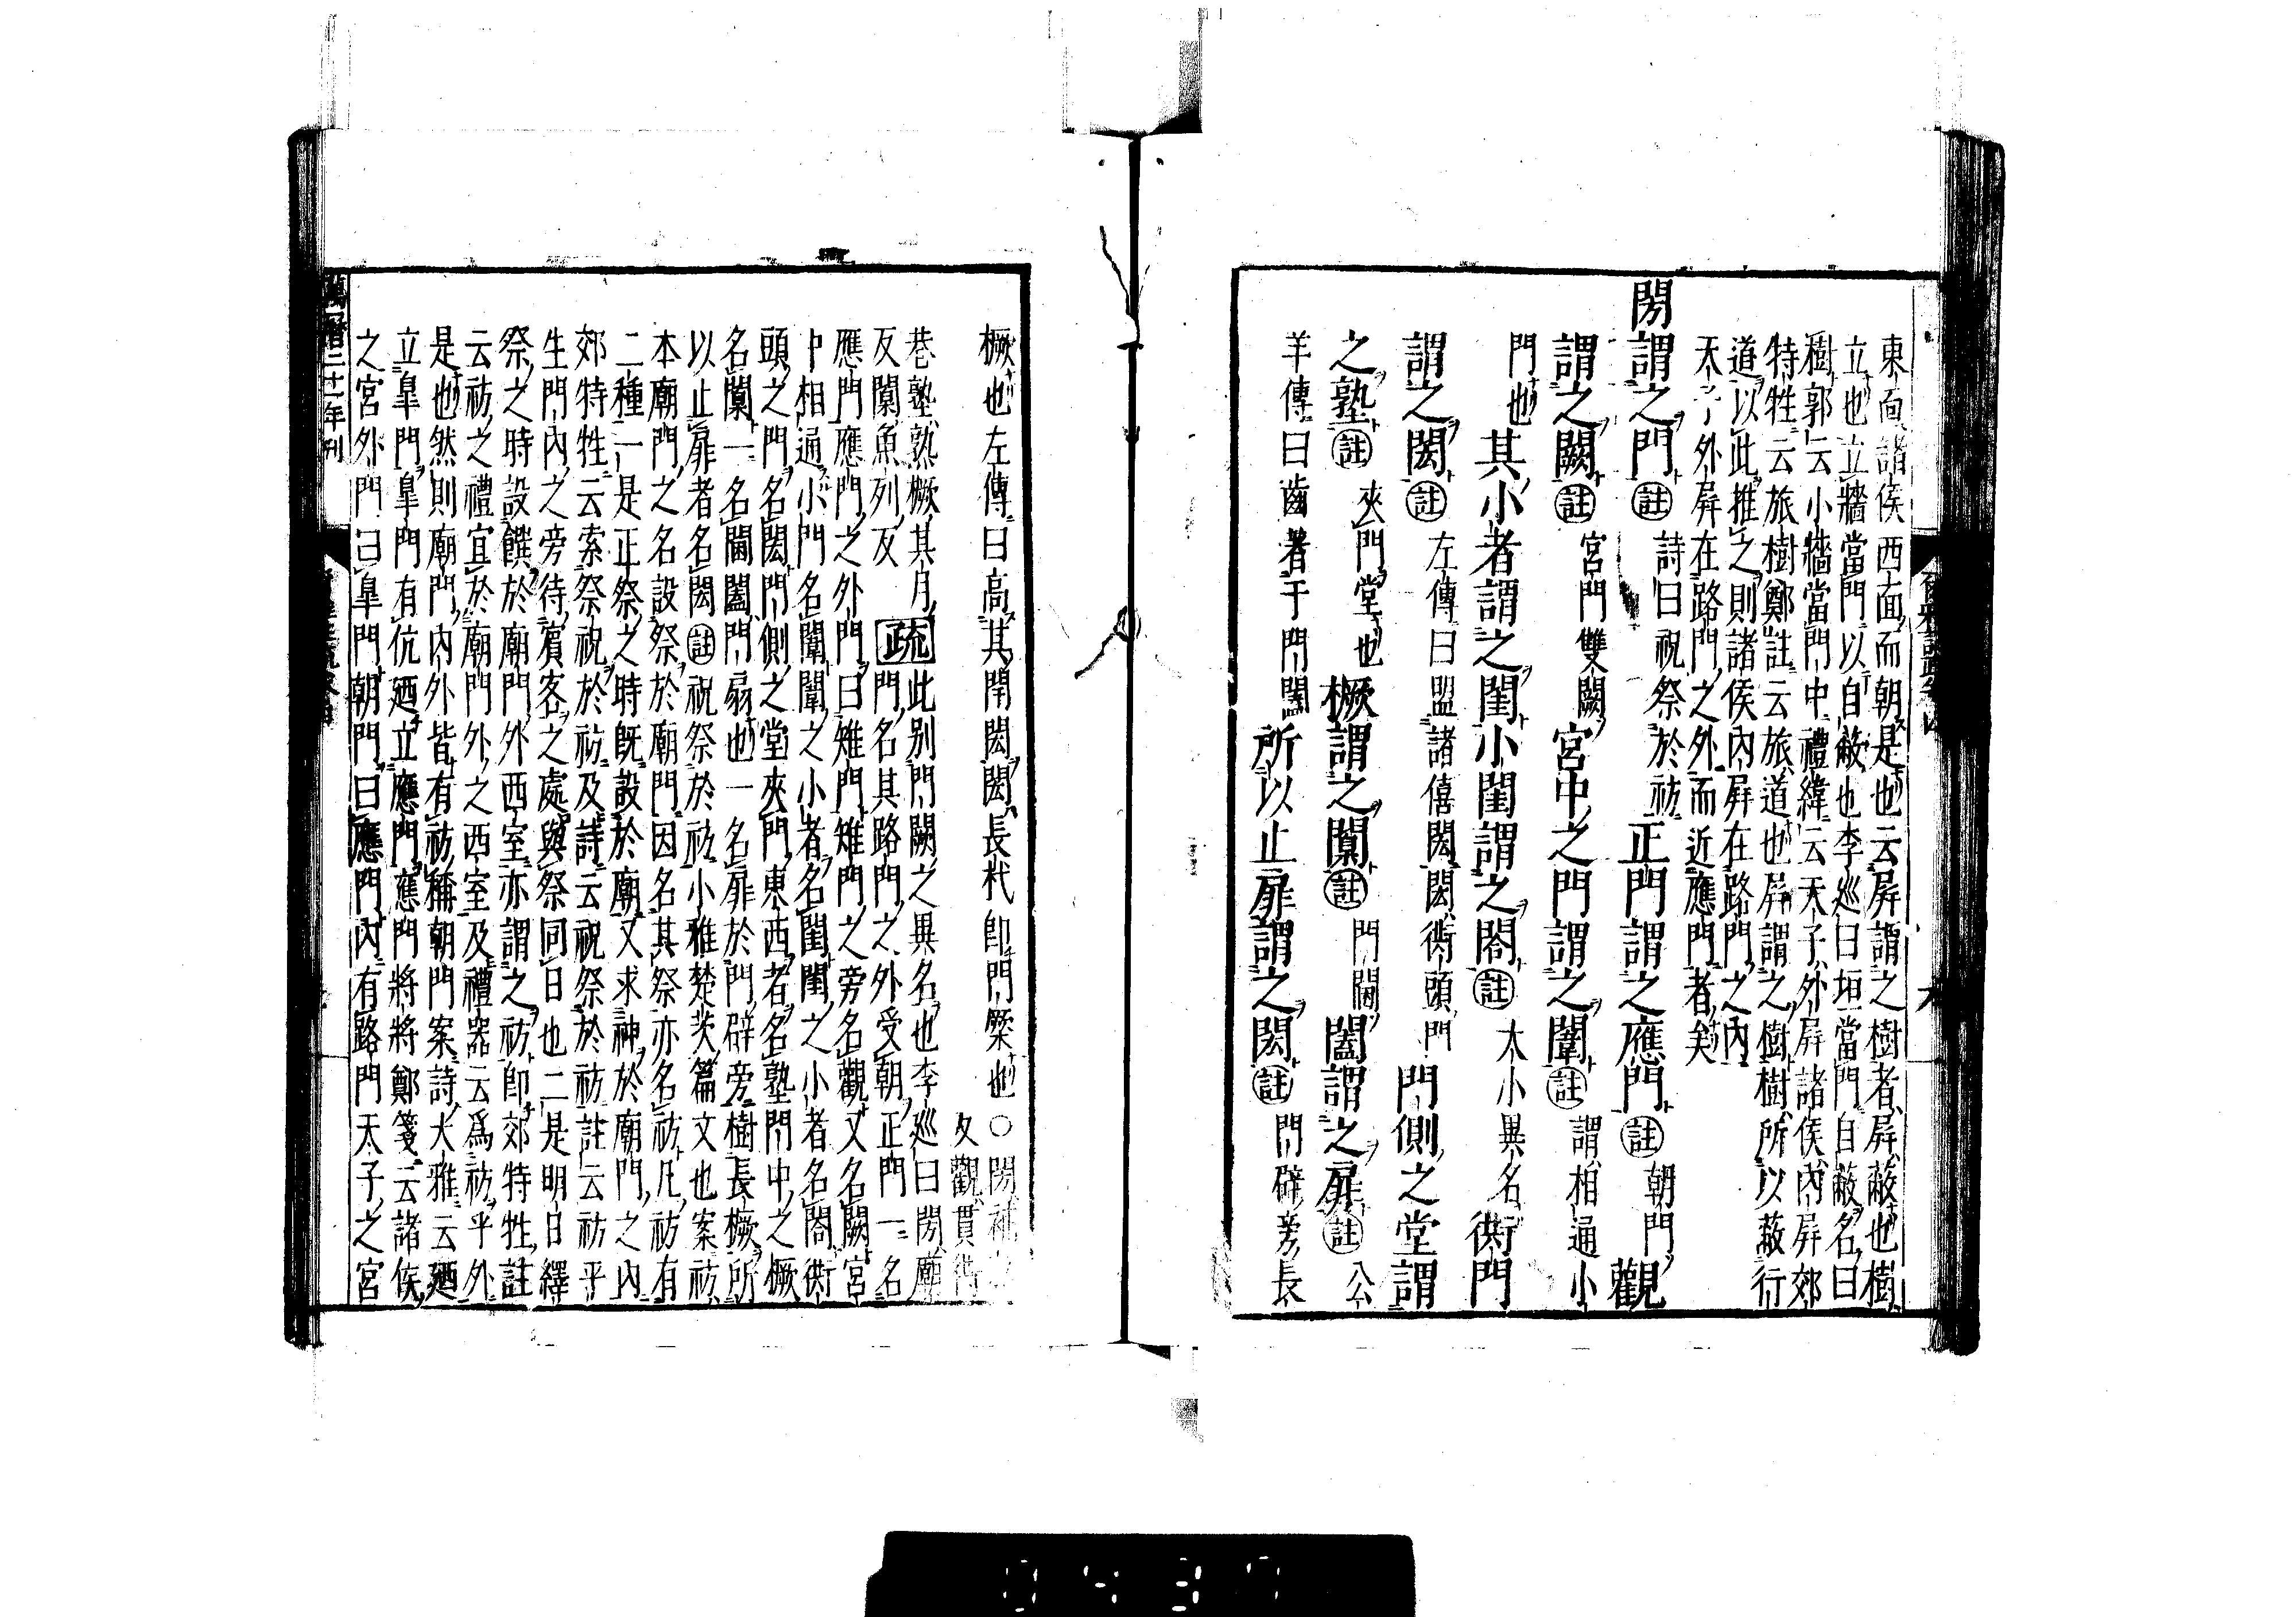 東面諸侯西面而朝是也云屏謂之樹者屏蔽也樹
立也立牆當門以自蔽也李巡曰垣當門自蔽名曰
樹郭云小牆當門中禮緯云天子外屏諸侯內屏郊
特牲云旅樹鄭註云旅道也屏謂之樹樹所以蔽行
道以此推之則諸侯內屏在路門之內
天子外屏在路門之外而近應門者矣
閍謂之門註詩曰祝祭於祊正門謂之應門註朝門觀
謂之闕註宮門雙闕宮中之門謂之闈註謂相通小
門也其小者謂之閨小閨謂之閤註大小異名衖門
謂之閎註左傳曰盟諸僖閎閎衖頭門門側之堂謂
之塾註夾門堂也橛謂之闑註門閫闔謂之扉註公
羊傳曰齒著于門闔所以止扉謂之閎註門辟旁長
橛也左傳曰高其閈閎閎長杙即門橜也○閍補
觀貫衖
巷塾熟橛其月
反闑魚列反疏此別門闕之異名也李巡曰閍廟
門名其路門之外受朝正門一名
應門應門之外門曰雉門雉門之旁名觀又名闕宮
中相通小門名闈闈之小者名閨閨之小者名閤衖
頭之門名閎門側之堂夾門東西者名塾門中之橛
名闑一名閫闔門扇也一名扉於門辟旁樹長橛所
以止扉者名閎註祝祭於祊小雅楚茨篇文也案祊
本廟門之名設祭於廟門因名其祭亦名祊凡祊有
二種一是正祭之時既設於廟又求神於廟門之內
郊特牲云索祭祝於祊及詩云祝祭於祊註云祊平
生門內之旁待賓客之處與祭同日也二是明日繹
祭之時設饌於廟門外西室亦謂之祊即郊特牲註
云祊之禮宜於廟門外之西室及禮器云爲祊乎外
是也然則廟門內外皆有祊稱朝門案詩大雅云廼
立臯門臯門有伉廼立應門應門將將鄭箋云諸侯
之宮外門曰臯門朝門曰應門內有路門天子之宮
萬曆二十一年刊